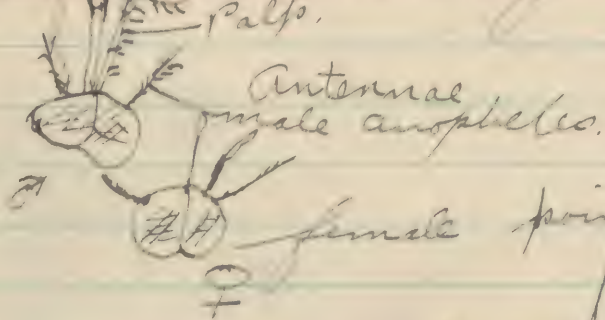 Palp.
Antennae
male anopheles.
♂
female
♀